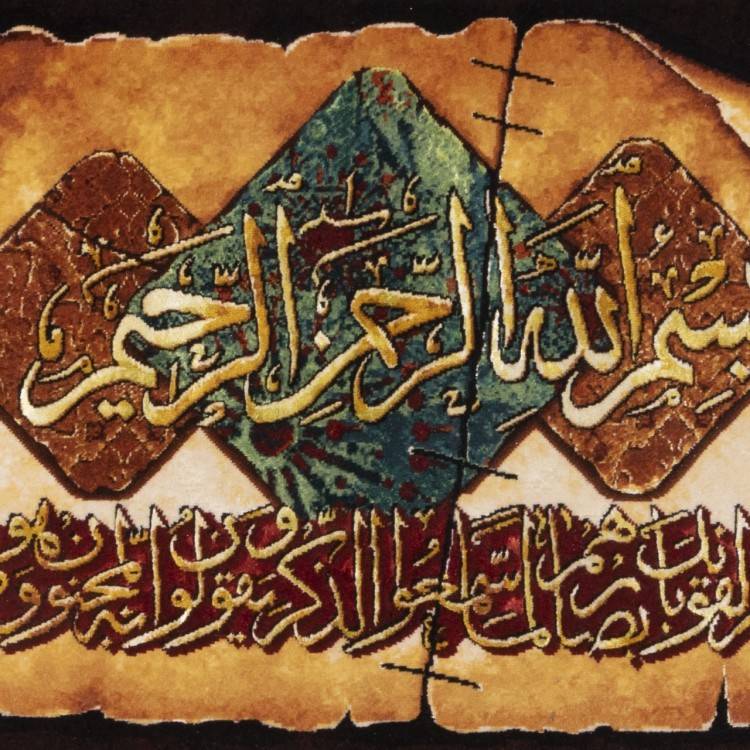 بِسْمِ اللَّهِ الرَّحْمَٰنِ الرَّحِيمِ
ليزلقونك بأبصارهم لما سمعوا الذكر ويقولون إنه لمجنون وما هو